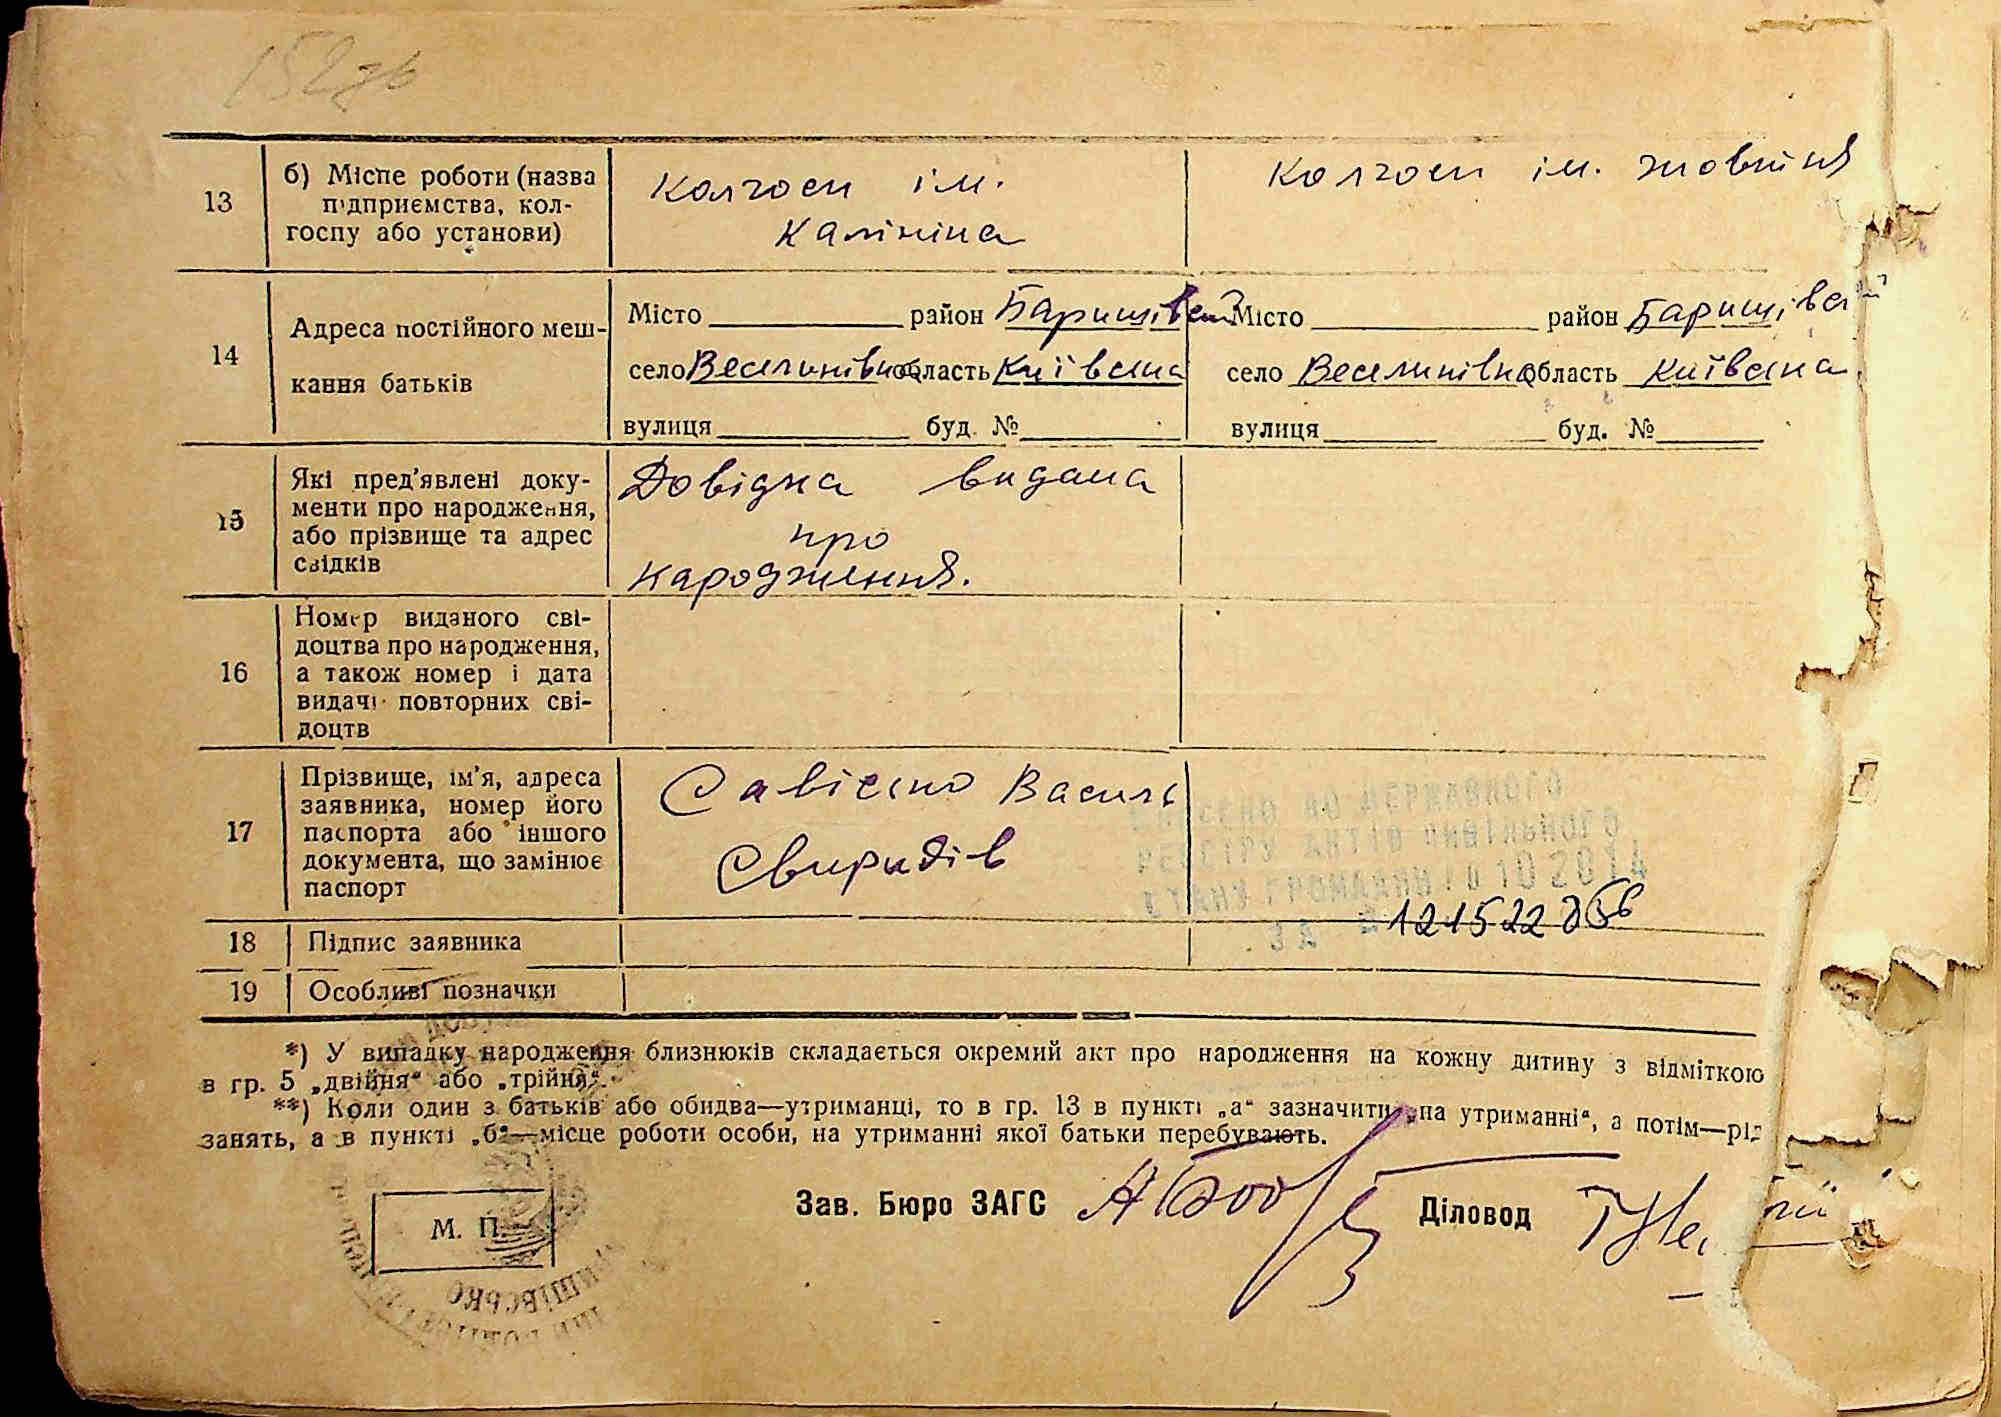 152зв
13
б) Місце роботи (назва
підприємства, кол-
госпу або установи)
колгосп ім.
Калініна
колгосп ім. жовтня
14
Адреса постійного меш-
кання батьків
Місто район Баришівськ
село Веселинівка область Київська
вулиця буд. №
Місто район Баришівсь
село Веселинівка область Київська
вулиця буд. №
15
Які пред'явлені доку-
менти про народження,
або прізвище та адрес
свідків
Довідка видана
про
народження.
16
Номер виданого сві-
доцтва про народження,
а також номер і дата
видачі повторних сві-
доцтв
17
Прізвище, ім'я, адреса
заявника, номер його
паспорта або іншого
документа, що замінює
паспорт
Савісько Василь
Свиридів
ВНЕСЕНО ДО ДЕРЖАВНОГО
РЕЄСТРУ АКТІВ ЦИВІЛЬНОГО
СТАНУ ГРОМАДЯН 10 2014
ЗА
18
Підпис заявника
19
Особливі позначки
*) У випадку народження близнюків складається окремий акт про народження на кожну дитину з відміткою
в гр. 5 „двійня“ або „трійня“.
**) Коли один з батьків або обидва—утриманці, то в гр. 13 в пункті „а“ зазначити „на утриманні“, а потім—рід
занять, а в пункті „б“—місце роботи особи, на утриманні якої батьки перебувають.
М. П.
Зав. Бюро ЗАГС
Діловод